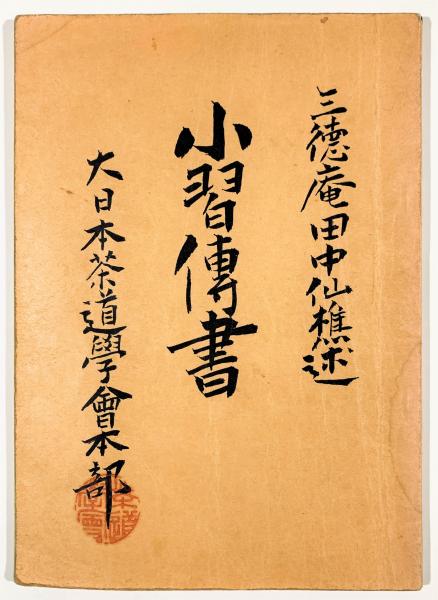 三徳庵田中仙樵述
小習傳書
大日本茶道學會本部